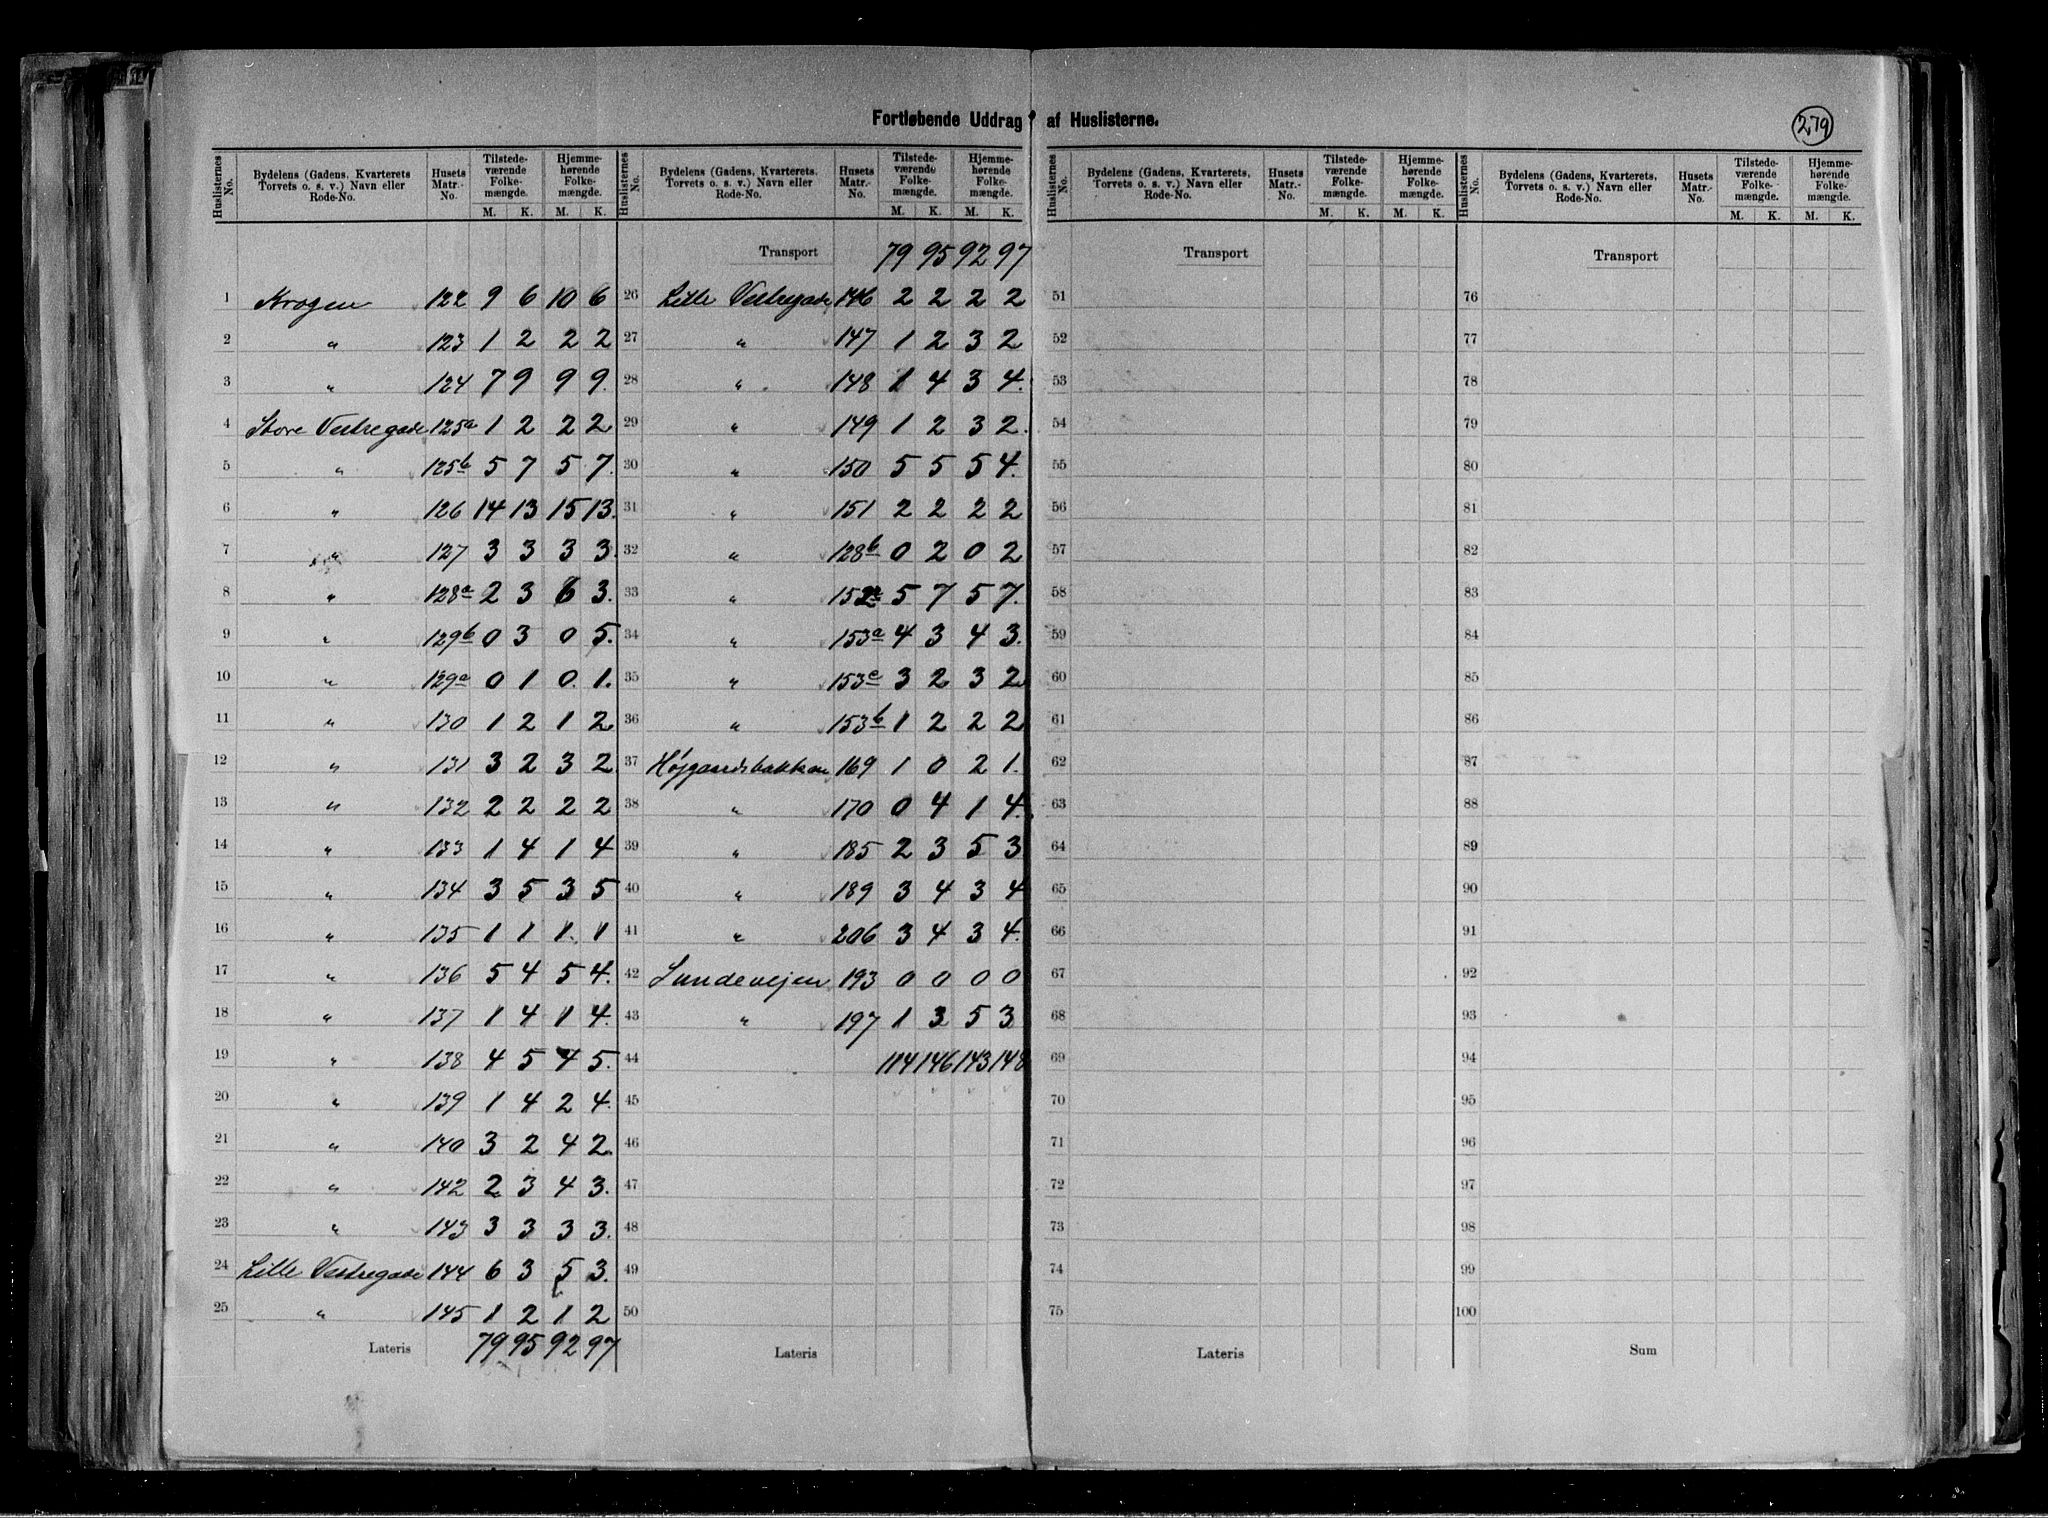 Fortløbende Uddrag af Huslisterne.
279
Huslisternes No. Bydelens (Gadens, Kvarterets Torvets o. s. v.) Navn eller Rode-No. Husets Matr.-No. Tilstedeværende Folkemængde. M. K. Hjemmehørende Folkemængde. M. K.
1 Krogen 122 9 6 10 6
2 " 123 1 2 2 2
3 " 124 7 9 9 9.
4 Store Vestregade 125a 1 2 2 2
5 " 125b 5 7 5 7.
6 " 126 14 13 15 13.
7 " 127 3 3 3 3.
8 " 128a 2 3 6 3.
9 " 129b 0 3 0 5.
10 " 129a 0 1 0. 1.
11 " 130 1 2 1 2
12 " 131 3 2 3 2.
13 " 132 2 2 2 2
14 " 133 1 4 1 4
15 " 134 3 5 3 5
16 " 135 1 1 1. 1
17 " 136 5 4 5 4.
18 " 137 1 4 1 4.
19 " 138 4 5 4 5.
20 " 139 1 4 2 4.
21 " 140 3 2 4 2.
22 " 142 2 3 4 3.
23 " 143 3 3 3 3.
24 Lille Vestregade 144 6 3 5 3.
25 " 145 1 2 1 2
Lateris 79 95 92 97
Huslisternes No. Bydelens (Gadens, Kvarterets Torvets o. s. v.) Navn eller Rode-No. Husets Matr.-No. Tilstedeværende Folkemængde. M. K. Hjemmehørende Folkemængde. M. K.
Transport 79 95 92 97
26 Lille Vestregade 146 2 2 2 2
27 " 147 1 2 3 2
28 " 148 1 4 3 4.
29 " 149 1 2 3 2.
30 " 150 5 5 5 4.
31 " 151 2 2 2 2
32 " 128b 0 2 0 2
33 " 152a 5 7 5 7.
34 " 153a 4 3 4 3.
35 " 153c 3 2 3 2
36 " 153b 1 2 2 2
37 Højgaardsbakken 169 1 0 2 1.
38 " 170 0 4 1 4.
39 " 185 2 3 5 3
40 " 189 3 4 3 4
41 " 206 3 4 3 4.
42 Sundevejen 193 0 0 0 0
43 " 197 1 3 5 3
44 114 146 143 148
45
46
47
48
49
50
Lateris
Huslisternes No. Bydelens (Gadens, Kvarterets, Torvets o. s. v.) Navn eller Rode-No. Husets Matr.-No. Tilstedeværende Folkemængde. M. K. Hjemmehørende Folkemængde. M. K.
Transport
51
52
53
54
55
56
57
58
59
60
61
62
63
64
65
66
67
68
69
70
71
72
73
74
75
Lateris
Huslisternes No. Bydelens (Gadens, Kvarterets, Torvets o. s. v.) Navn eller Rode-No. Husets Matr.-No. Tilstedeværende Folkemængde. M. K. Hjemmehørende Folkemængde. M. K.
Transport
76
77
78
79
80
81
82
83
84
85
86
87
88
89
90
91
92
93
94
95
96
97
98
99
100
Sum